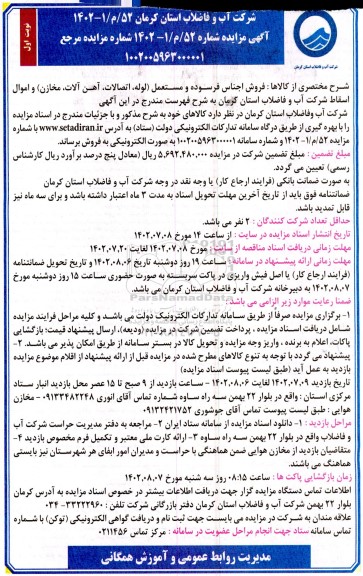 شرکت آب و فاضلاب استان کرمان ۵۲/م/۱-۱۴۰۲
آگهی مزایده شماره ۵۲/م/۱-۱۴۰۲ شماره مزایده مرجع
۱۰۰۲۰۰۵۹۶۳۰۰۰۰۰۱
نوبت اول
شرکت آب و فاضلاب استان کرمان
شرح مختصری از کالاها : فروش اجناس فرسوده و مستعمل (لوله، اتصالات، آهن آلات، مخازن) و اموال
اسقاط شرکت آب و فاضلاب استان کرمان به شرح فهرست مندرج در این آگهی
شرکت آب وفاضلاب استان کرمان در نظر دارد کالاهای خود به شرح مذکور و با جزئیات مندرج در اسناد مزایده
را با بهره گیری از طریق درگاه سامانه تدارکات الکترونیکی دولت (ستاد) به آدرس www.setadiran.ir با شماره
مزایده ۵۲/م/۱-۱۴۰۲ و شماره سامانه ۱۰۰۲۰۰۵۹۶۳۰۰۰۰۰۱ به صورت الکترونیکی به فروش برساند.
مبلغ تضمین : مبلغ تضمین شرکت در مزایده ۵.۶۹۲.۴۸۰.۰۰۰ ریال (معادل پنج درصد برآورد ریال کارشناس
رسمی) تعیین می گردد.
به صورت ضمانت بانکی (فرایند ارجاع کار) یا وجه نقد در وجه شرکت آب و فاضلاب استان کرمان
ضمانتنامه فوق باید از تاریخ آخرین مهلت تحویل اسناد به مدت ۳ ماه اعتبار داشته باشد و برای سه ماه نیز
قابل تمدید باشد.
حداقل تعداد شرکت کنندگان : ۲ نفر می باشد.
تاریخ انتشار اسناد مزایده در سایت : از ساعت ۱۴ مورخ ۱۴۰۲.۰۷.۰۸
مهلت زمانی دریافت اسناد مناقصه از سایت: مورخ ۱۴۰۲.۰۷.۰۸ لغایت ۱۴۰۲.۰۷.۲۰
مهلت زمانی ارائه پیشنهاد در سامانه: ساعت ۱۹ روز دوشنبه مورخ ۱۴۰۲.۰۸.۰۶ و تاریخ تحویل ضمانتنامه
(فرایند ارجاع کار) یا اصل فیش واریزی در پاکت سربسته به صورت حضوری ساعت ۱۵ روز دوشنبه مورخ
۱۴۰۲.۰۸.۰۷ به دبیرخانه شرکت آب و فاضلاب استان کرمان می باشد.
ضمنا رعایت موارد زیر الزامی می باشد:
۱- برگزاری مزایده صرفا از طریق سامانه تدارکات الکترونیک دولت می باشد و کلیه مراحل فرایند مزایده
شامل دریافت اسناد مزایده ، پرداخت تضمین شرکت در مزایده (ودیعه)، ارسال پیشنهاد قیمت؛ بازگشایی
پاکات، اعلام به برنده ، واریز وجه مزایده و تحویل کالا در بستر سامانه از طریق امکان پذیر می باشد. ۲-
پیشنهاد می گردد با توجه به تنوع کالاهای مطرح شده در مزایده قبل از ارائه پیشنهاد از اقلام موضوع مزایده
بازدید به عمل آید (طبق لیست پیوست اسناد مزایده)
تاریخ بازدید ۱۴۰۲.۰۷.۰۹ لغایت ۱۴۰۲.۰۸.۰۶ - ساعت بازدید از ۹ صبح تا ۱۵ عصر محل بازدید انبار ستاد
مرکزی استان : واقع در بلوار ۲۲ بهمن سه راه ساوه شماره تماس آقای انوری ۰۹۱۳۳۴۸۲۲۴۸ - مخازن
هوایی : طبق لیست پیوست تماس آقای جوشوری ۰۹۱۳۲۴۲۱۷۵۲
مراحل بازدید : ۱- دانلود اسناد مزایده از سامانه ستاد ایران ۲- مراجعه به دفتر مدیریت حراست شرکت آب
و فاضلاب واقع در بلوار ۲۲ بهمن سه راه ساوه ۳- ارائه کارت ملی معتبر و تکمیل فرم مخصوص بازدید ۴-
متقاضیان بازدید از مخازن هوایی ضمن هماهنگی با حراست و مدیران امور آبفای هر شهرستان نیز بایستی
هماهنگ می باشند.
زمان بازگشایی پاکت ها : ساعت ۰۸:۱۵ روز سه شنبه مورخ ۱۴۰۲.۰۸.۰۷
اطلاعات تماس دستگاه مزایده گزار جهت دریافت اطلاعات بیشتر در خصوص اسناد مزایده به آدرس کرمان
بلوار ۲۲ بهمن شرکت آب و فاضلاب استان کرمان دفتر بازرگانی شرکت تلفن : ۳۳۲۲۲۹۶۰-۰۳۴
علاقه مندان به شرکت در مزایده می بایست جهت ثبت نام و دریافت گواهی الکترونیکی (توکن) با شماره
تماس سامانه ستاد جهت انجام مراحل عضویت در سامانه : مرکز تماس ۰۲۱۱۴۵۶
مدیریت روابط عمومی و آموزش همگانی